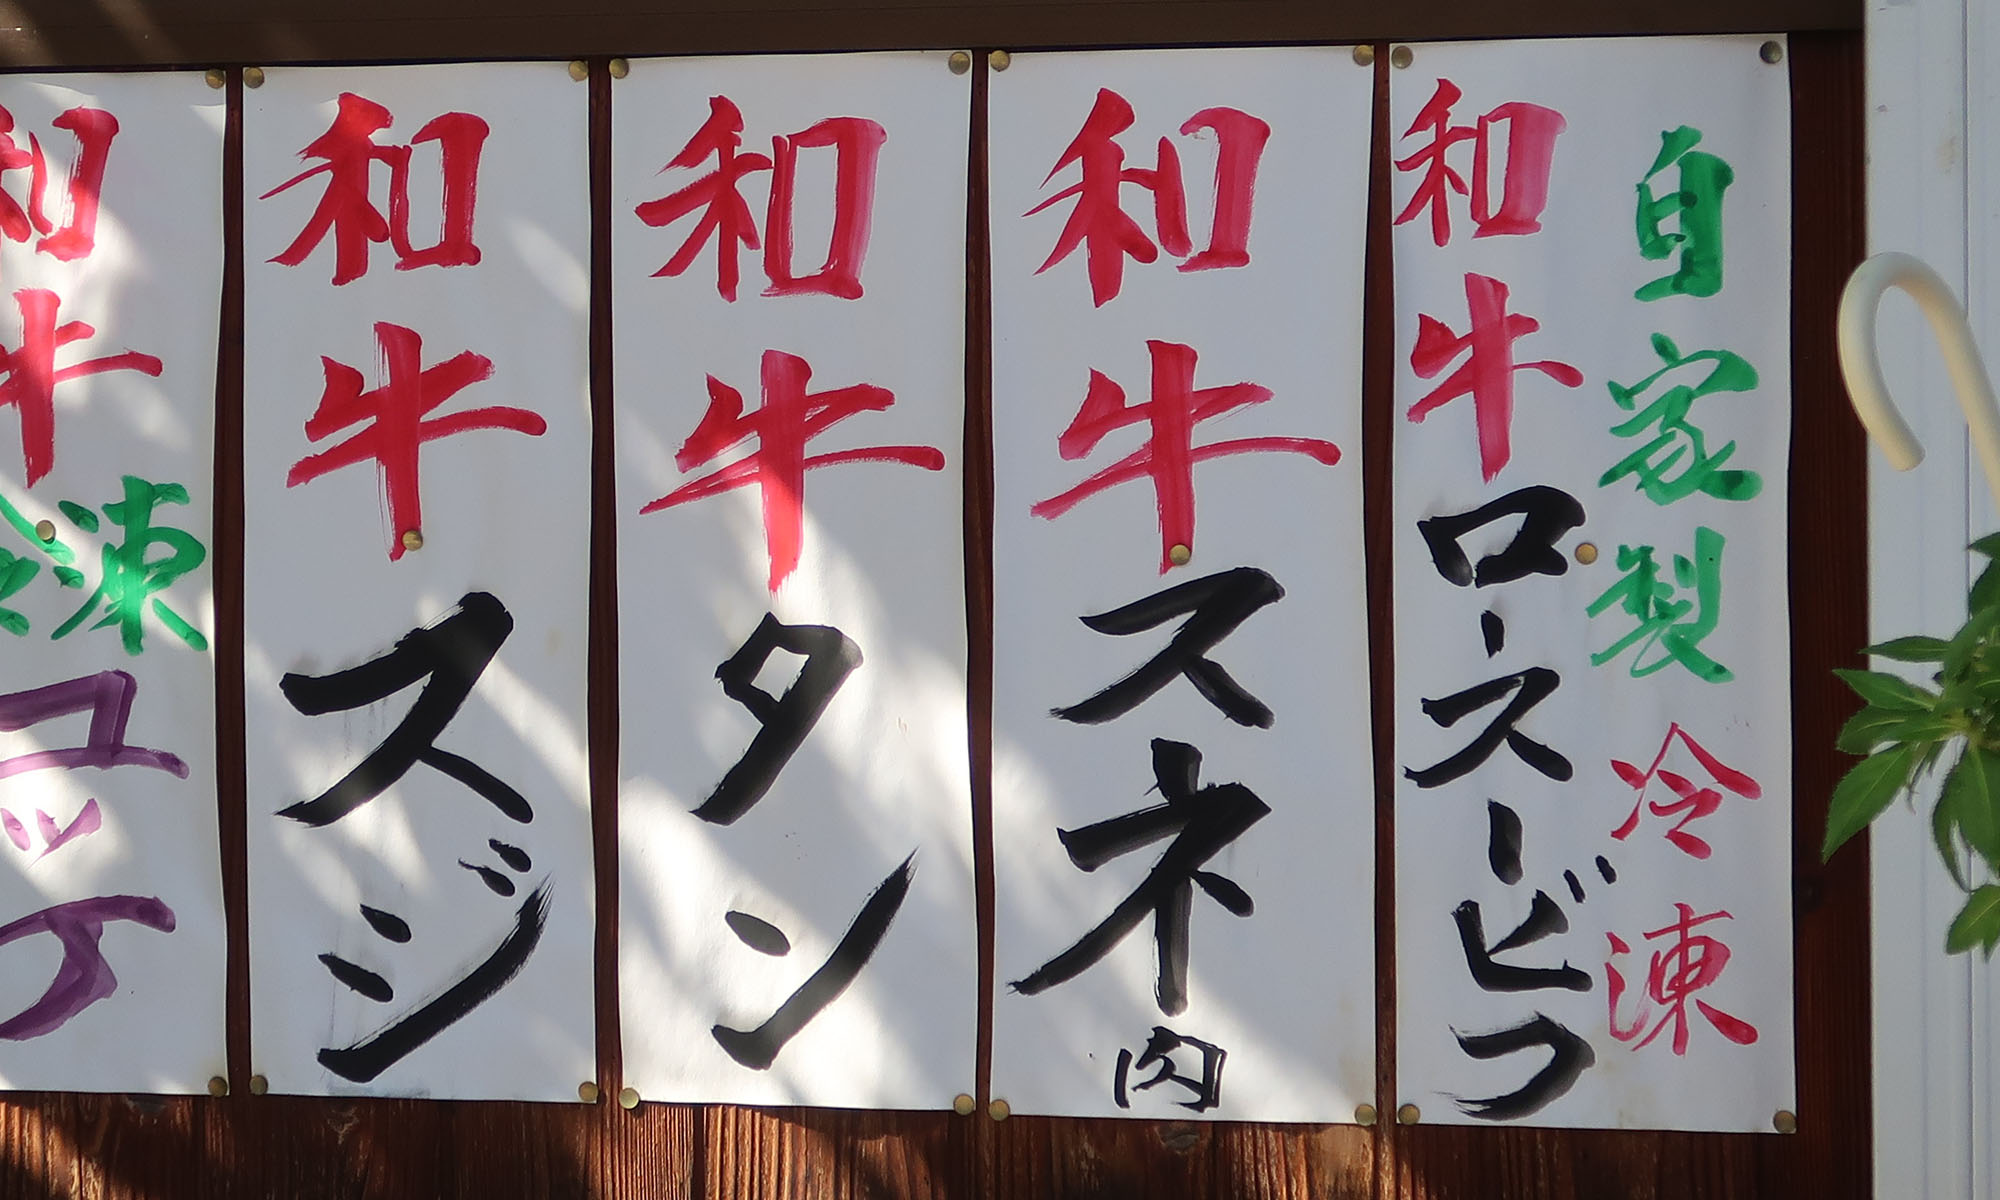 自家製 冷凍
和牛ローストビーフ
和牛スネ肉
和牛タン
和牛スジ
和牛
冷凍
コッテ